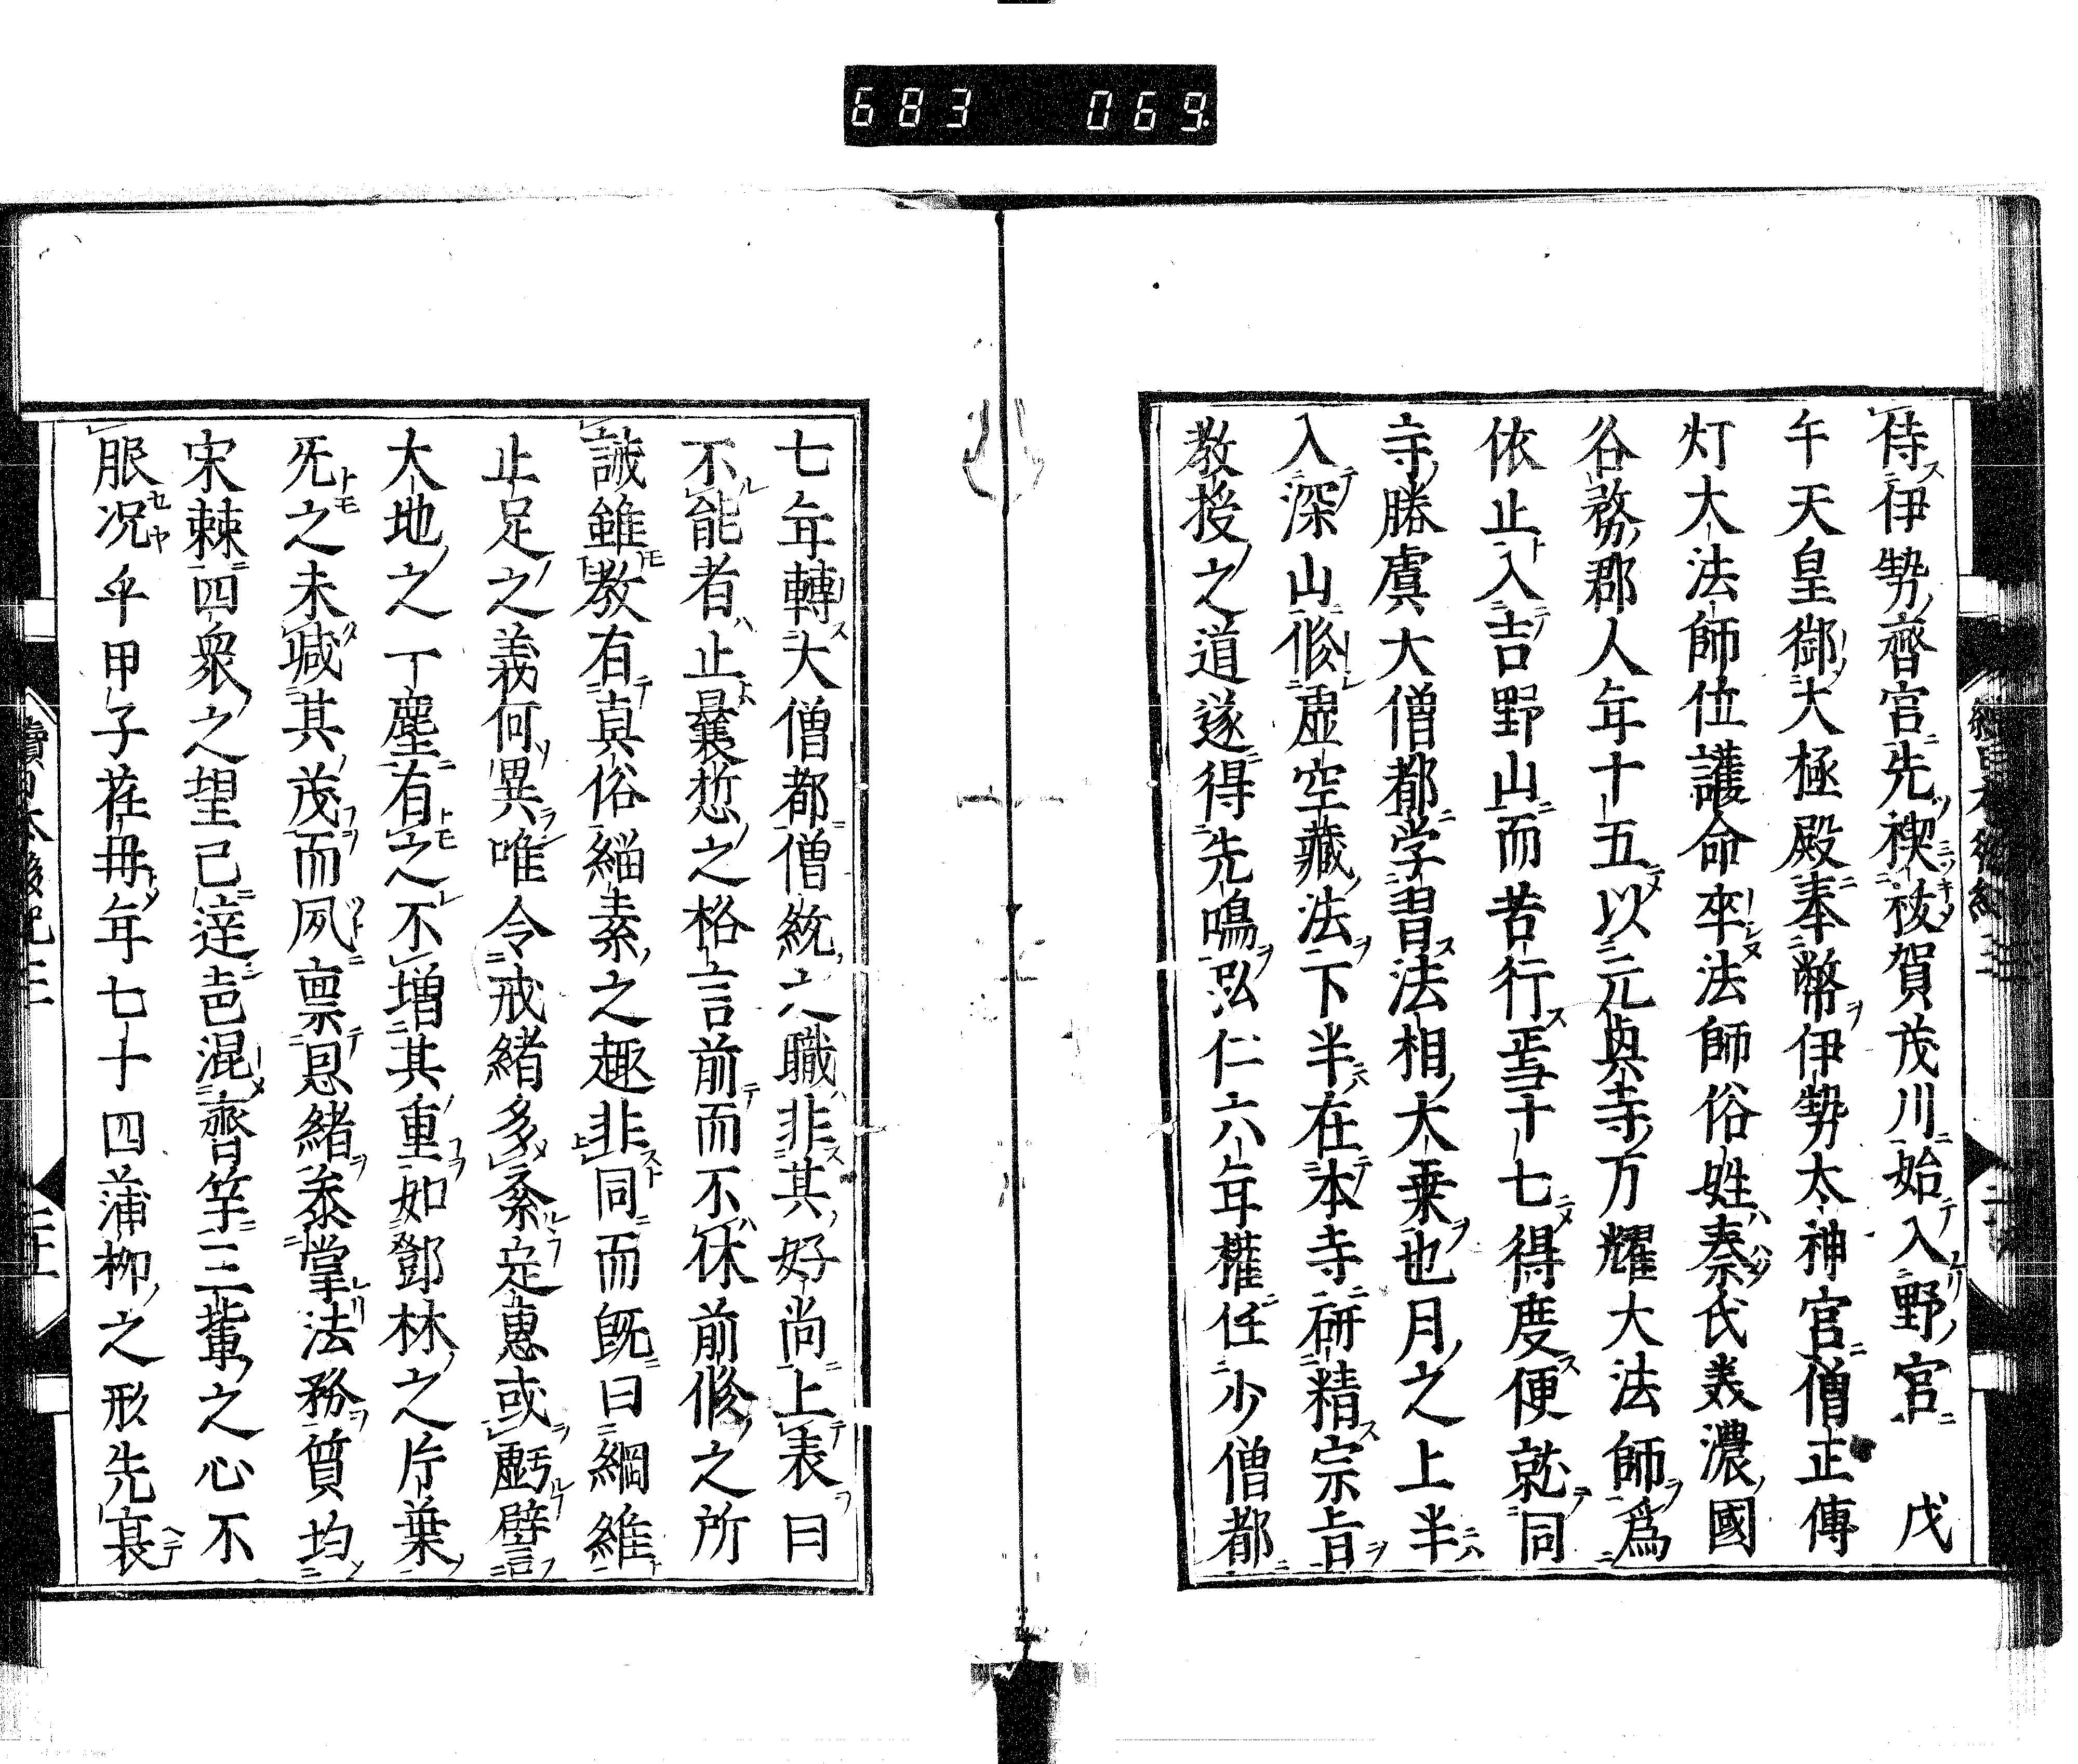 683 069.
侍伊勢齊宮先禊祓賀茂川始入野宮 戊
午天皇御大極殿奉幣伊勢太神宮僧正傳
灯大法師位護命卒法師俗姓秦氏美濃國
谷務郡人年十五以元興寺万耀大法師爲
依止入吉野山而苦行焉十七得度便就同
寺勝虞大僧都学習法相大乗也月之上半
入深山修虚空藏法下半在本寺研精宗旨
教授之道遂得先鳴弘仁六年權任少僧都
七年轉大僧都僧統之職非其好尚上表曰
不能者止曩哲之格言前而不休前修之所
誡雖教有真俗緇素之趣非同而既曰綱維
止足之義何異唯令戒緒多紊定惠或虧譬
大地之丁塵有之不増其重如鄧林之片葉
旡之未減其茂而夙禀恩緒忝掌法務質均
宋棘四衆之望已逹邑混齊竽三輩之心不
服况乎甲子荏冉年七十四蒲柳之形先衰